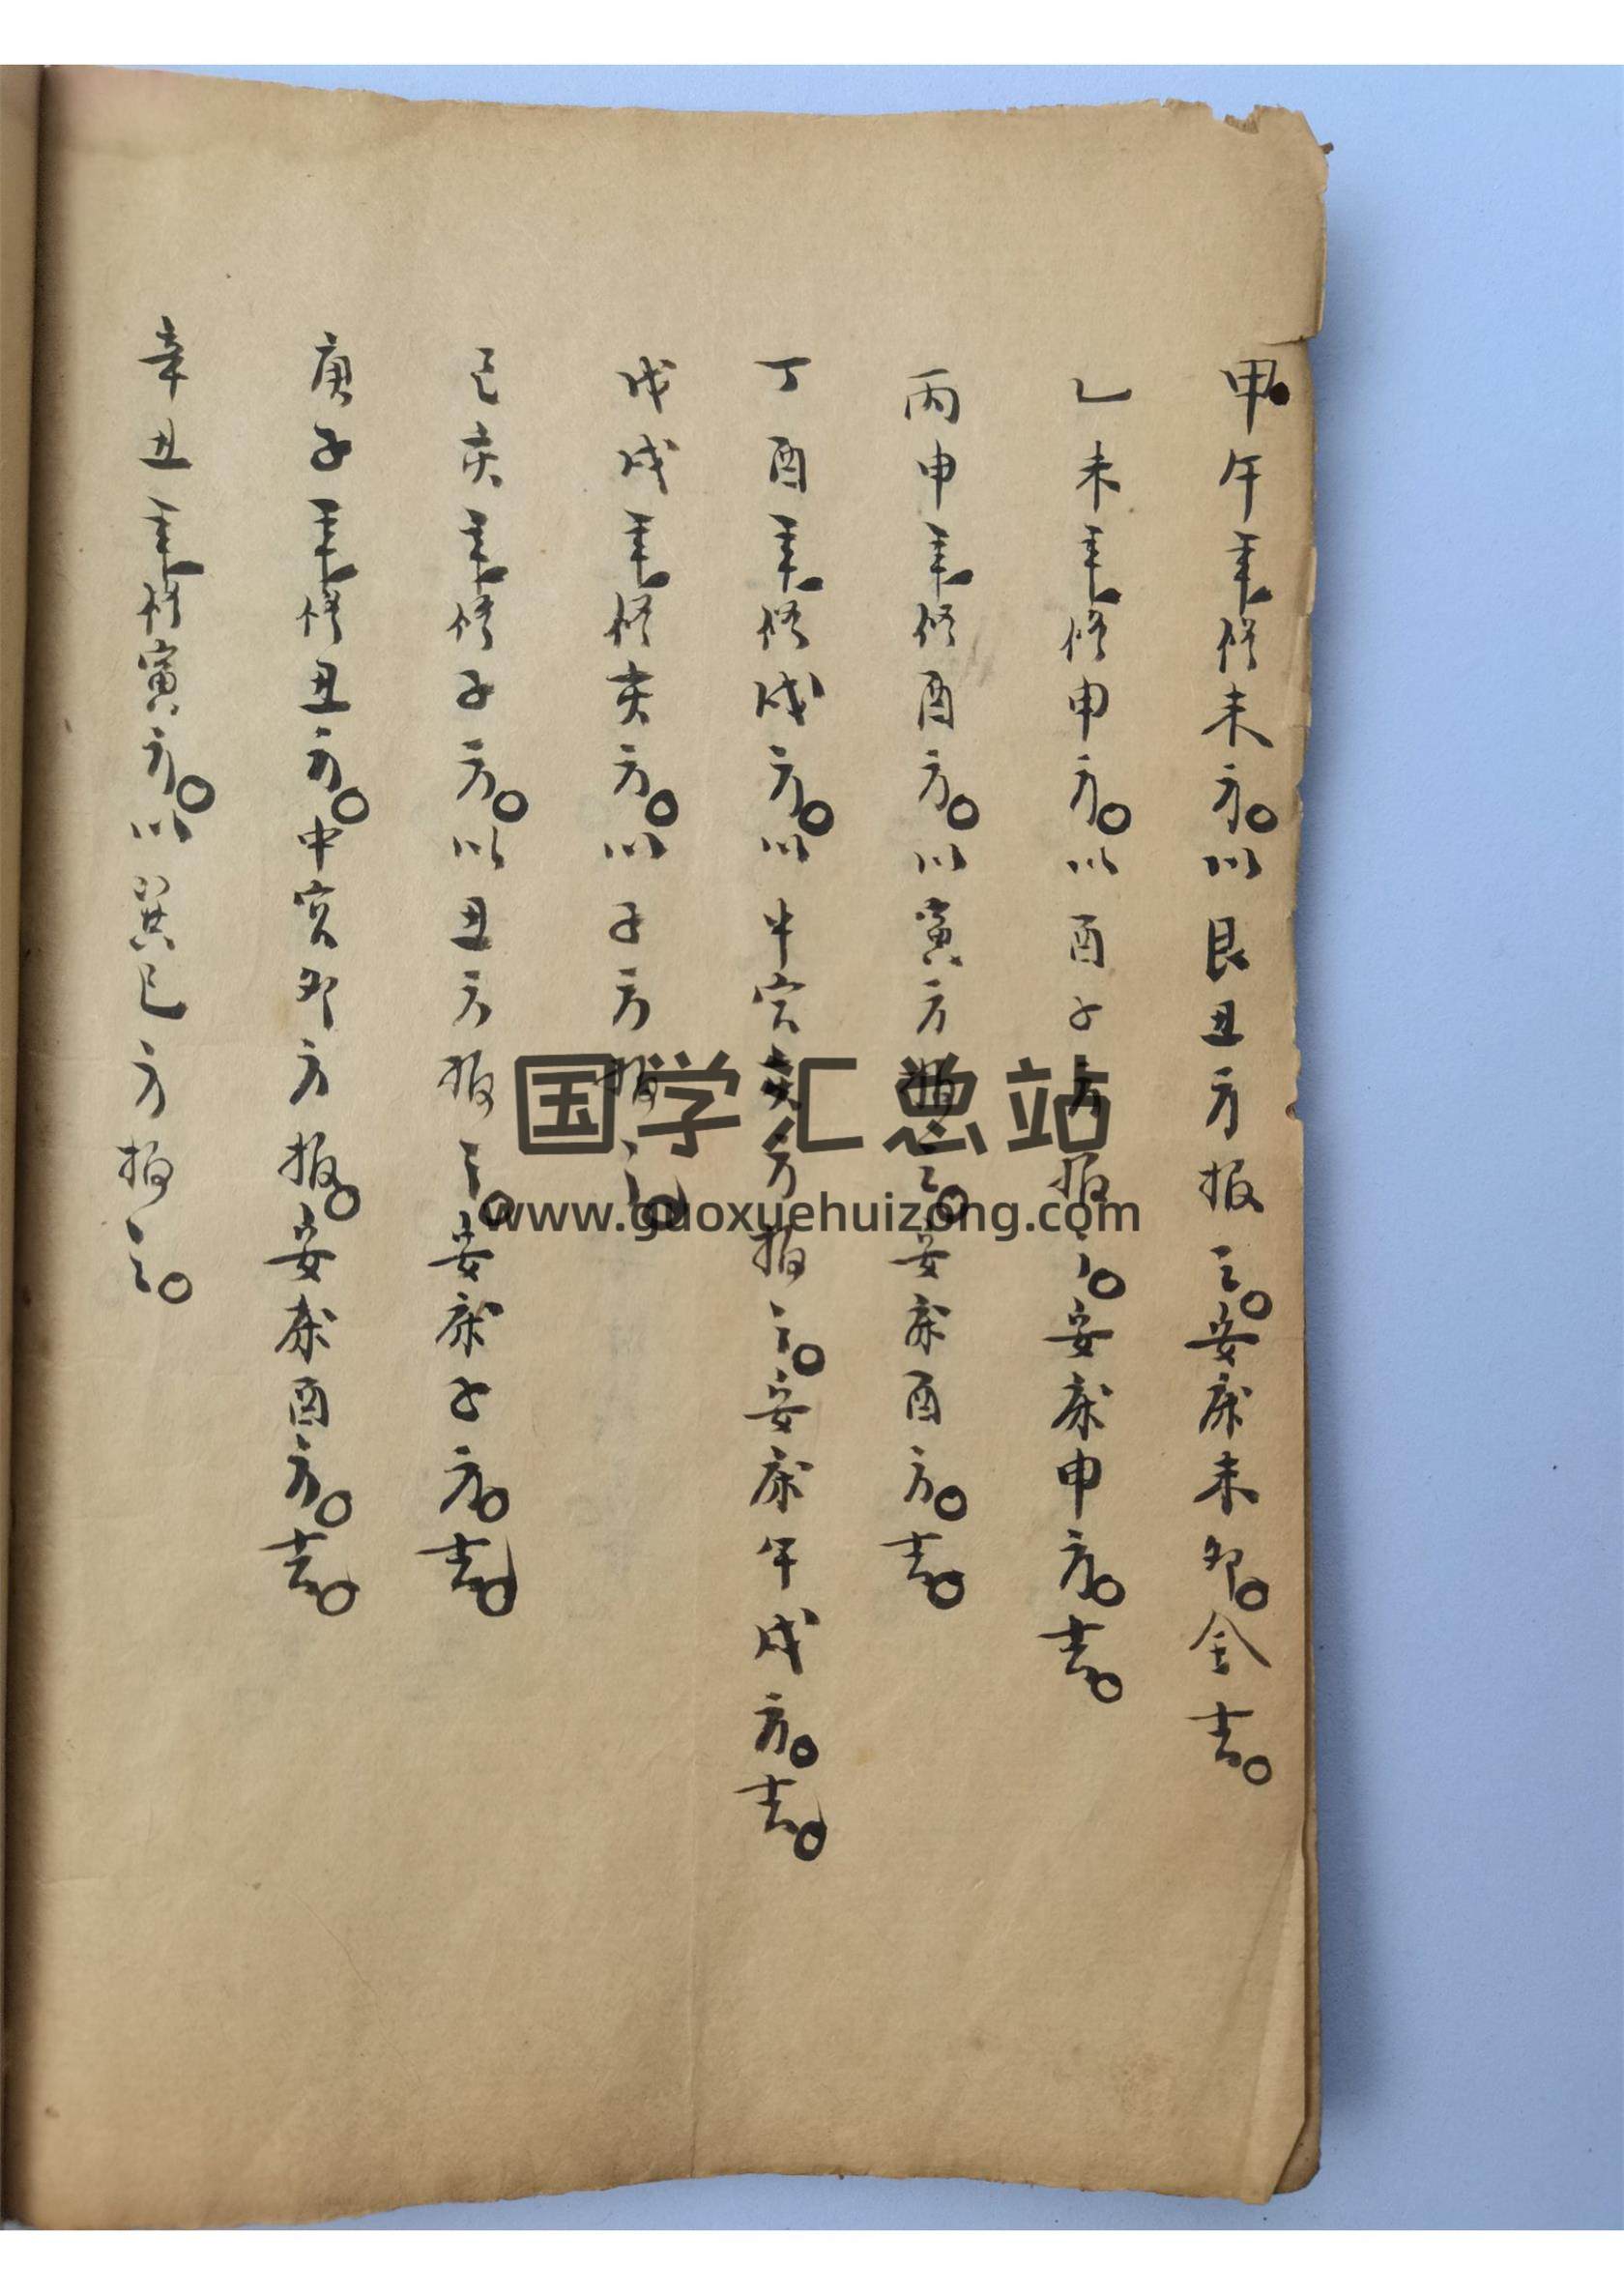 甲午年修未方。以艮丑方报之。安床未卯。全吉。
乙未年修申方。以酉子方报之。安床申方。吉。
丙申年修酉方。以寅方报之。安床酉方。吉。
丁酉年修戌方。以中宫亥方报之。安床午戌方。吉。
戊戌年修亥方。以子方报之。
己亥年修子方。以丑方报之。安床子方。吉。
庚子年修丑方。中宫卯方报。安床酉方。吉。
辛丑年修寅方。以巽巳方报之。
国学汇总站
www.guoxuehuizong.com